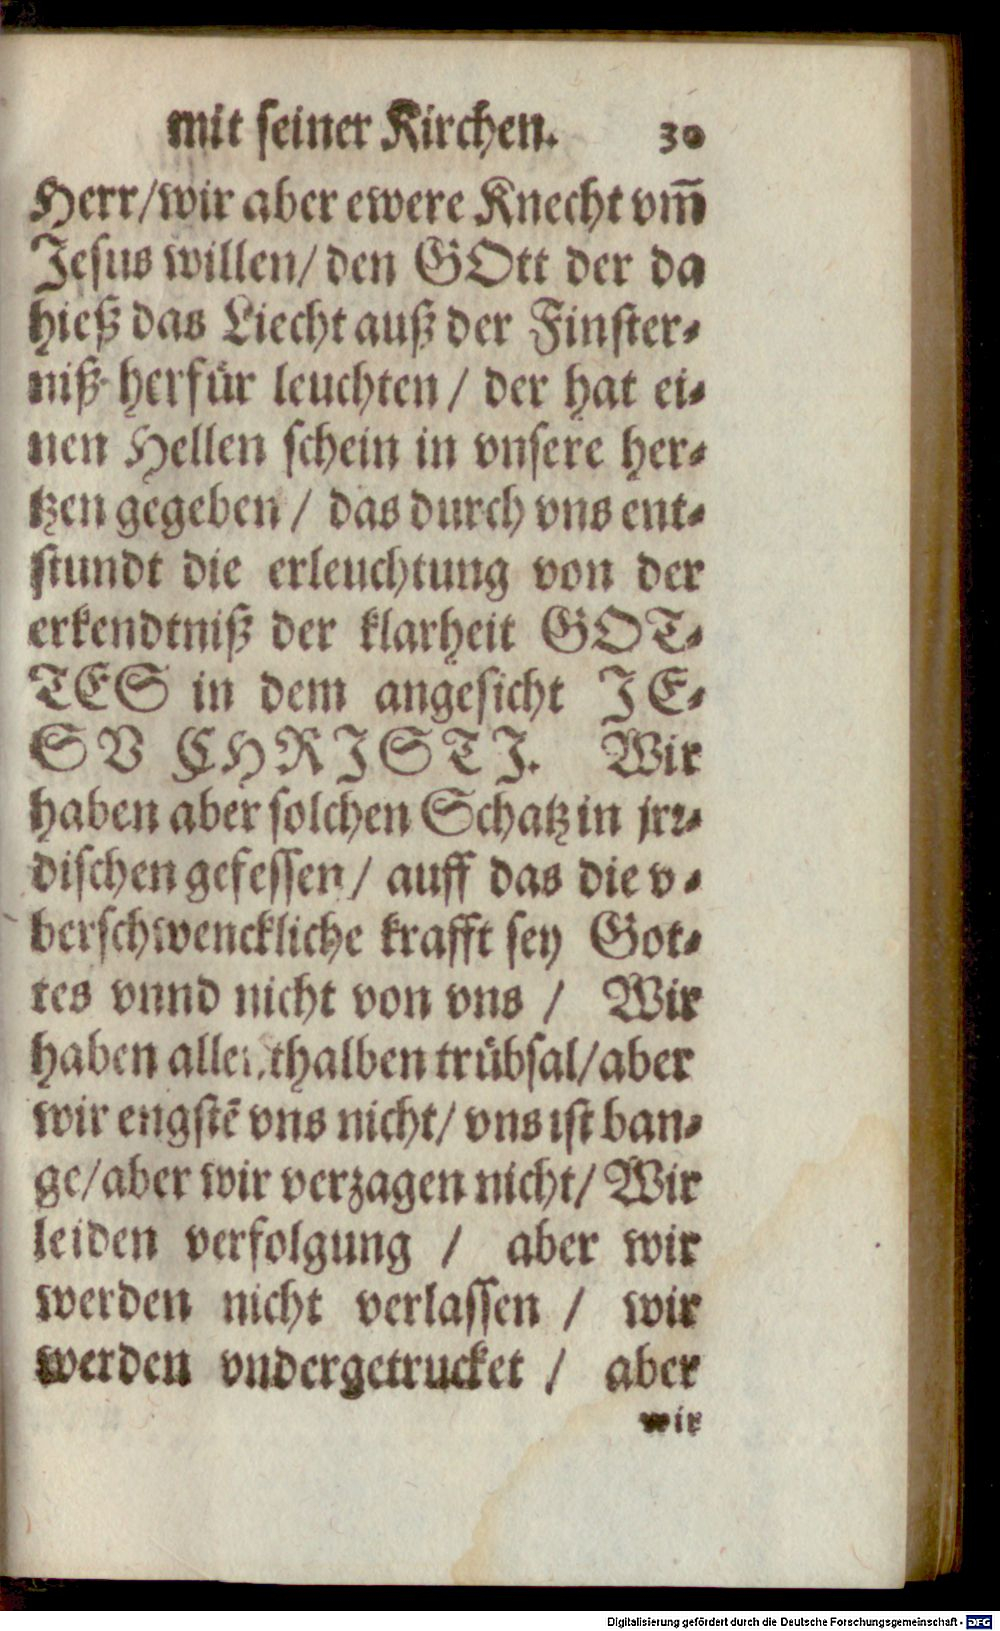 mit seiner Kirchen. 30
Herr/wir aber ewere Knecht vm̃
Jesus willen/ den GOtt der da
hieß das Liecht auß der Finster-
niß herfür leuchten / der hat ei-
nen Hellen schein in vnsere her-
tzen gegeben / das durch vns ent-
stundt die erleuchtung von der
erkendtniß der klarheit GOT-
TES in dem angesicht JE-
SV CHRISTI. Wir
haben aber solchen Schatz in jrr-
dischen gefessen / auff das die v-
berschwenckliche krafft sey Got-
tes vnnd nicht von vns / Wir
haben allenthalben trübsal/aber
wir engstē vns nicht/ vns ist ban-
ge/aber wir verzagen nicht/ Wir
leiden verfolgung / aber wir
werden nicht verlassen / wir
werden vndergetrucket / aber
wir
Digitalisierung gefördert durch die Deutsche Forschungsgemeinschaft - DFG